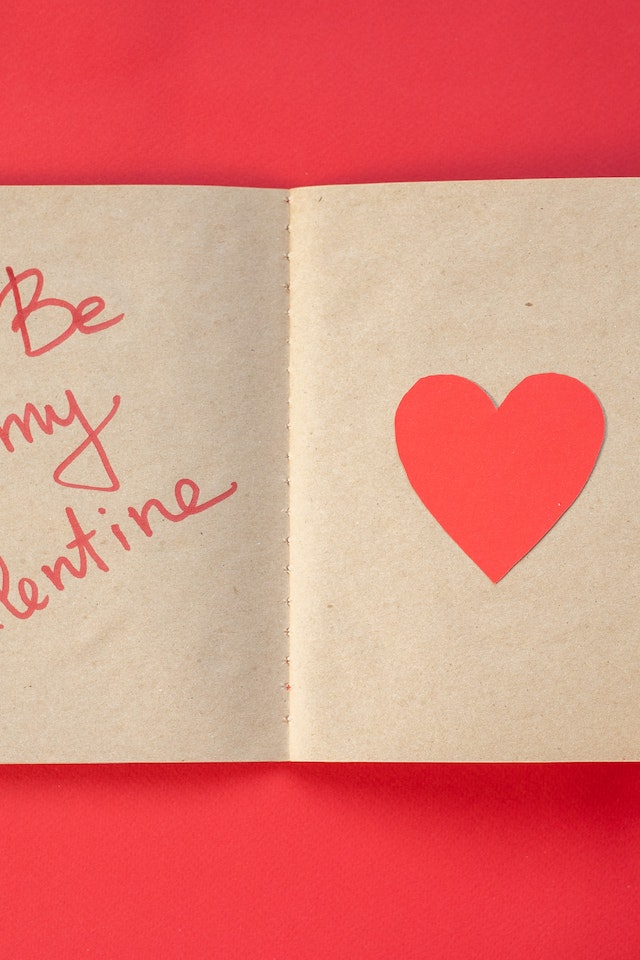 Be
my
lentine